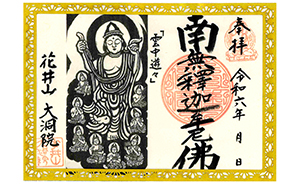 奉拝
令和六年 月 日
南無釋迦牟尼佛
「雲中遊々」
花井山 大洞院